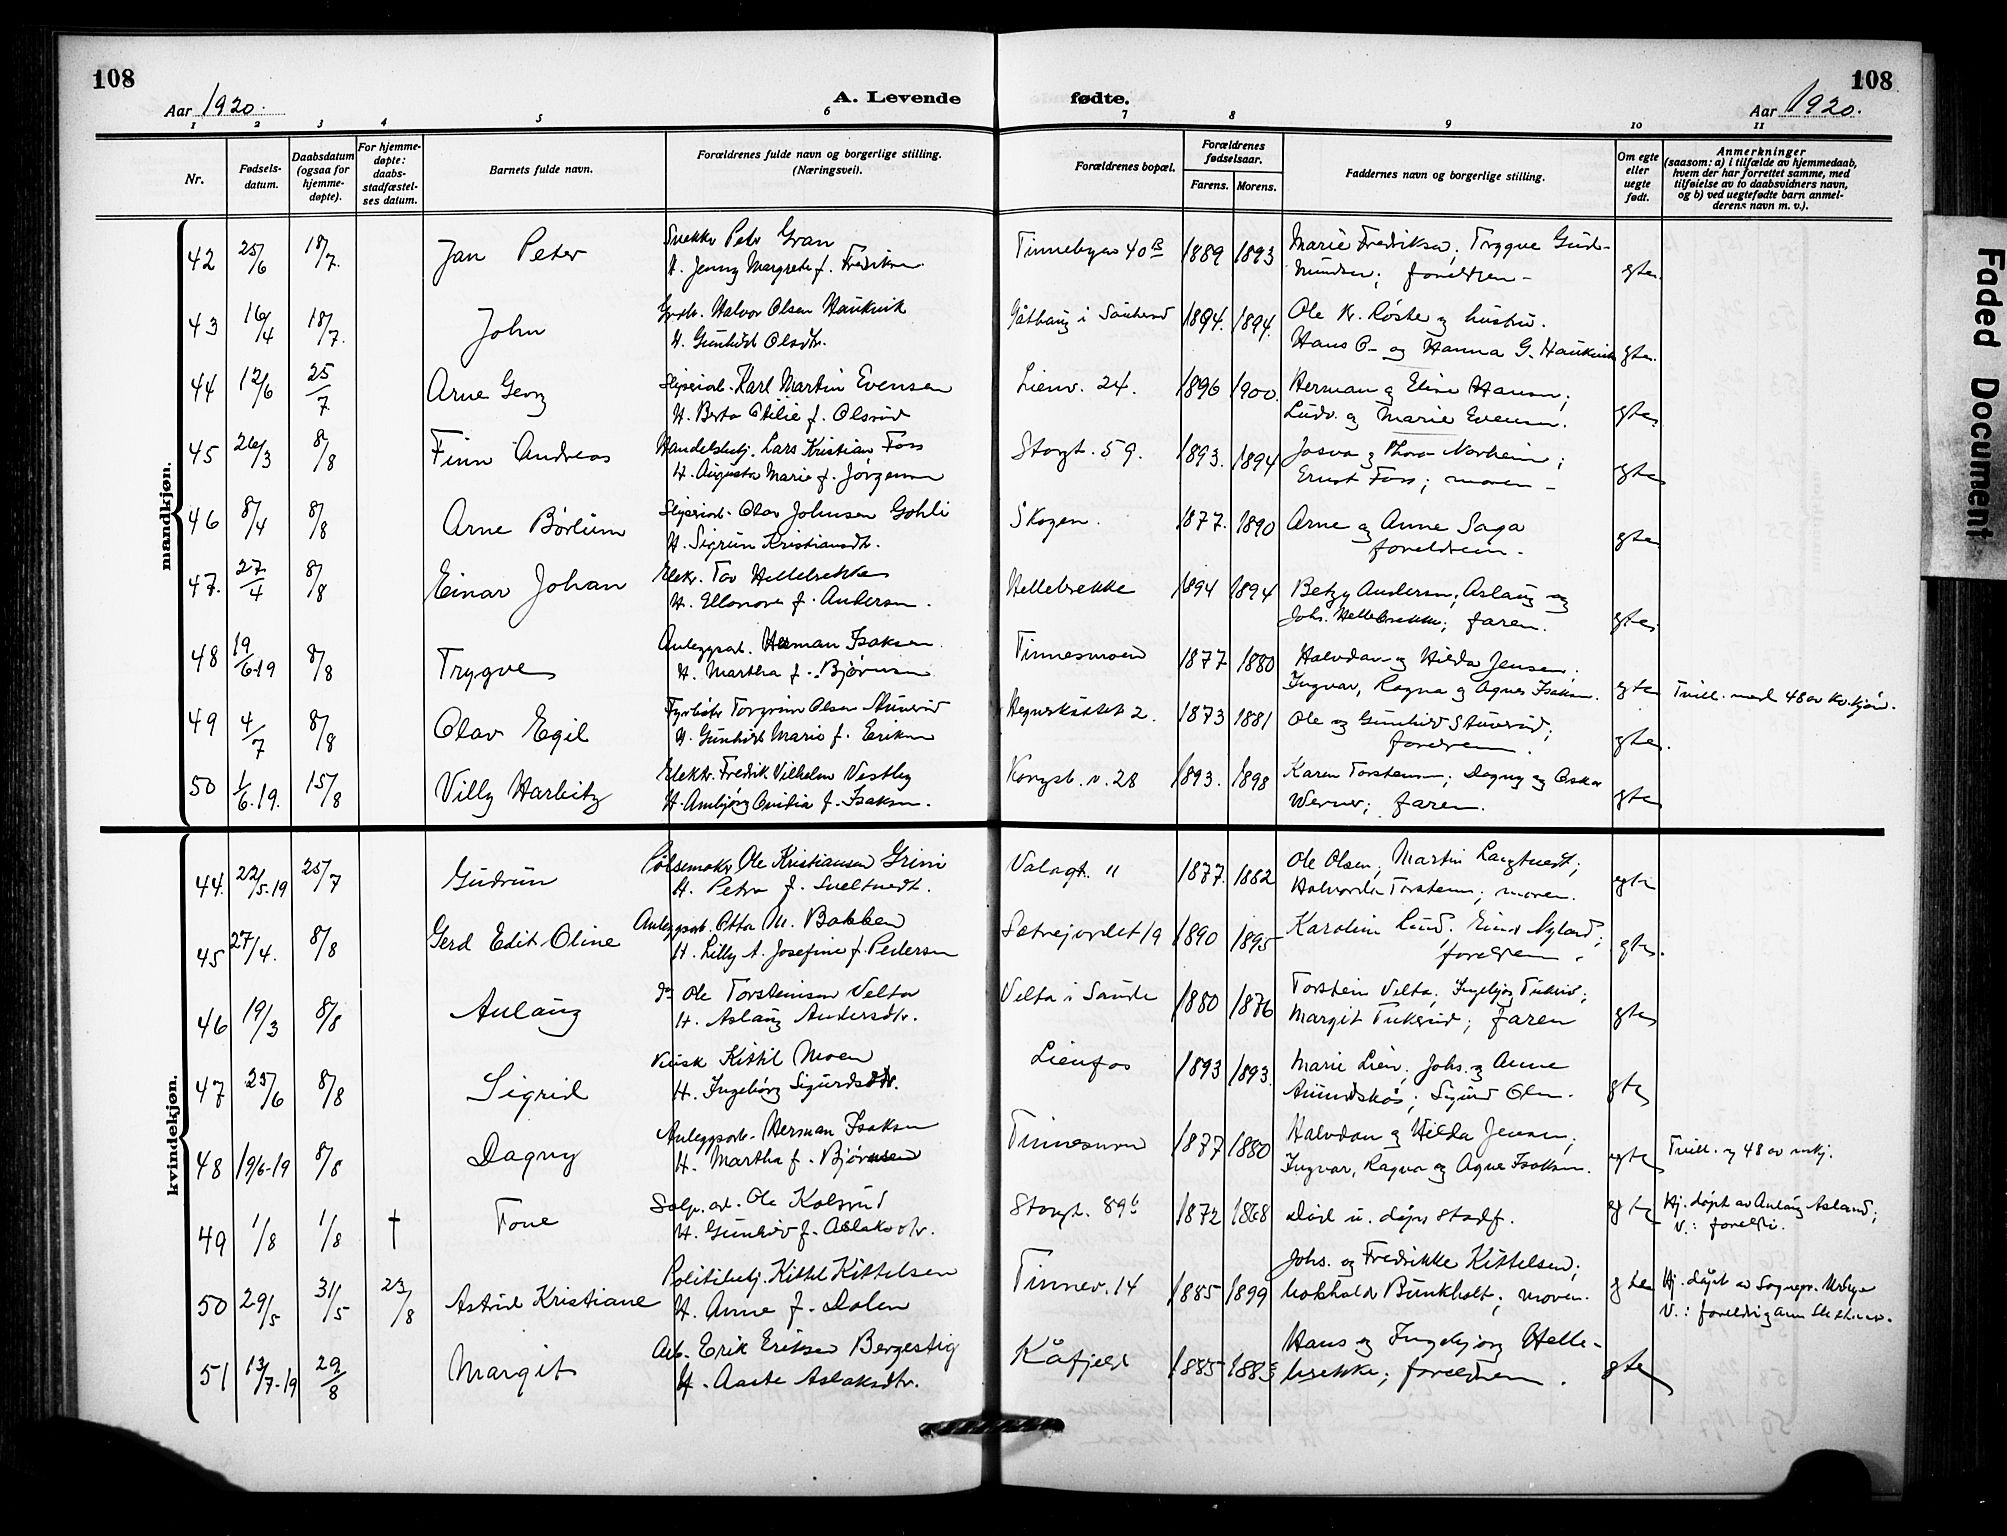 108
108
Aar 1920.
A. Levende
fødte.
Aar 1920.
1 2 3 4 5 6 7 8 9 10 11
Nr.
Fødsels-
datum.
Daabsdatum
(ogsaa for
hjemme-
døpte).
For hjemme-
døpte:
daabs-
stadfæstel-
ses datum.
Barnets fulde navn.
Forældrenes fulde navn og borgerlige stilling.
(Næringsvei).
Forældrenes bopæl.
Forældrenes
fødselsaar.
Farens. Morens.
Faddernes navn og borgerlige stilling.
Om egte
eller
uegte
født.
Anmerkninger
(saasom: a) i tilfælde av hjemmedaab,
hvem der har forrettet samme, med
tilføielse av to daabsvidners navn,
og b) ved uegtefødte barn anmel-
derens navn m. v.).
mandkjøn.
42 25/6 18/7. Jan Peter Snekker Peter Gran Tinnebyen 40B 1889 1893 Marie Fredriksen; Trygve Gud-
H. Jenny Margrete f. Fredriksen mundsen; foreldren - gte.
43 16/4 18/7. John Halvor Olsen Haukvik i Sauherad 1894. 1894. Ole K. Røste og hustru.
H. Gunhild Olsdtr. Hans O- og Hanna G. Haukvik gte.
44 12/6 25/7 Arne Georg Sliperiarb. Karl Martin Evensen Lienv. 24. 1896 1900. Herman og Eline Hansen;
H. Berta Otilie f. Olsrud Ludv. og Marie Evensen. gte
45 26/3 8/8 Finn Andreas Handelsbetj. Lars Kristian Foss Storgt. 59. 1893. 1894 Josva og Thora Norheim;
H. Augusta Marie f. Jørgensen Ernst Foss; moren - gte
46 8/4 8/8 Arne Børlum Sliperiarb. Olav Johnsen Gohli Skogen. 1877. 1890 Arne og Anne Saga
H. Sigrun Kristiansdtr. foreldrene - gte.
47. 27/4 8/8 Einar Johan Elekr. Tov Hellebrekke Hellebrekke 1894 1894 Betzy Andersen; Aslaug og
H. Ellonora f. Andersen. Johs. Hellebrekke; faren. gte
48 19/6-19 8/8 Trygve Anleggsarb. Herman Isaksen Tinnesmoen 1877 1880 Halvdan og Hilda Jensen;
H. Martha f. Bjørnsen Ingvar, Ragna og Agnes Isaksen. gte Tvill. med 48 av kv.kjøn.
49 4/7 8/8 Olav Egil Fyrbøter Torgrim Olsen 2. 1873 1881 Ole og Gunhild
H. Gunhild Marie f. Eriksen foreldren. gte.
50 1/6-19. 15/8 Villy Harbitz Elektr. Fredrik Vilhelm Vestby Kongsb. v. 28 1893. 1898 Karen Torstensen; Dagny og Oskar
f. Isaksen. Werner; faren. gte
kvindekjøn.
44. 22/5-19 25/7 Gudrun Pølsemaker Ole Kristiansen Grini Valagt. 11 1877. 1882 Ole Olsen; Martin Langtvedt;
H. Petra f. Sveltvedt. Halvorda Torstensen; moren. egte
45 27/4. 8/8 Gerd Edit Oline Anleggsarb. Otto M. Bakken Sætrejordet 19 1890 1895 Karoline Lund. Nyland;
H. Lilly A. Josefine f. Pedersen foreldren. gte.
46 19/3 8/8 Aulaug do Ole Torsteinsen Velta Velta i Saude 1880 1876 Torstein Velta; Ingebjørg
H. Aslaug Andersdtr. Margit faren gte
47 25/6 8/8 Sigrid Kittil Moen Lienfos 1893 1893. Marie Lien; Johs. og Anne
H. Ingebjørg Sigurdsdtr. Sigurd Olsen. gte
48 19/6-19 8/8 Dagny Anleggsarb. Herman Isaksen Tinnesmoen 1877 1880 Halvdan og Hilda Jensen;
H. Martha f. Bjørnsen Ingvar, Ragna og Agnes Isaksen. egte Tvill. og 48 av mkj.
49 1/8 1/8 † Tone Ole Kolsrud Storgt. 89b 1872 1868 død u. døps stadf. egte Hj. døpt av Aulaug Asland;
H. Gunhild f. Aslaksdtr. V.: foreldr.
50 29/5 31/5 23/8 Astrid Kristiane Politibetj. Kittil Kittelsen Tinnev. 14 1885 1899 Johs. og Fredrikke Kittelsen;
H. Anne f. Dalen bokhold. Bunkholt; moren. gte Hj. døpt av Sognepr.
V.: foreldr. og
51 13/7-19 29/8 Margit Arb. Erik Eriksen Bergestig Kåfjeld 1885 1883 Hans og Ingebjørg Helle-
H. Aaste Aslaksdtr. brekke; foreldren. gte
Faded Document